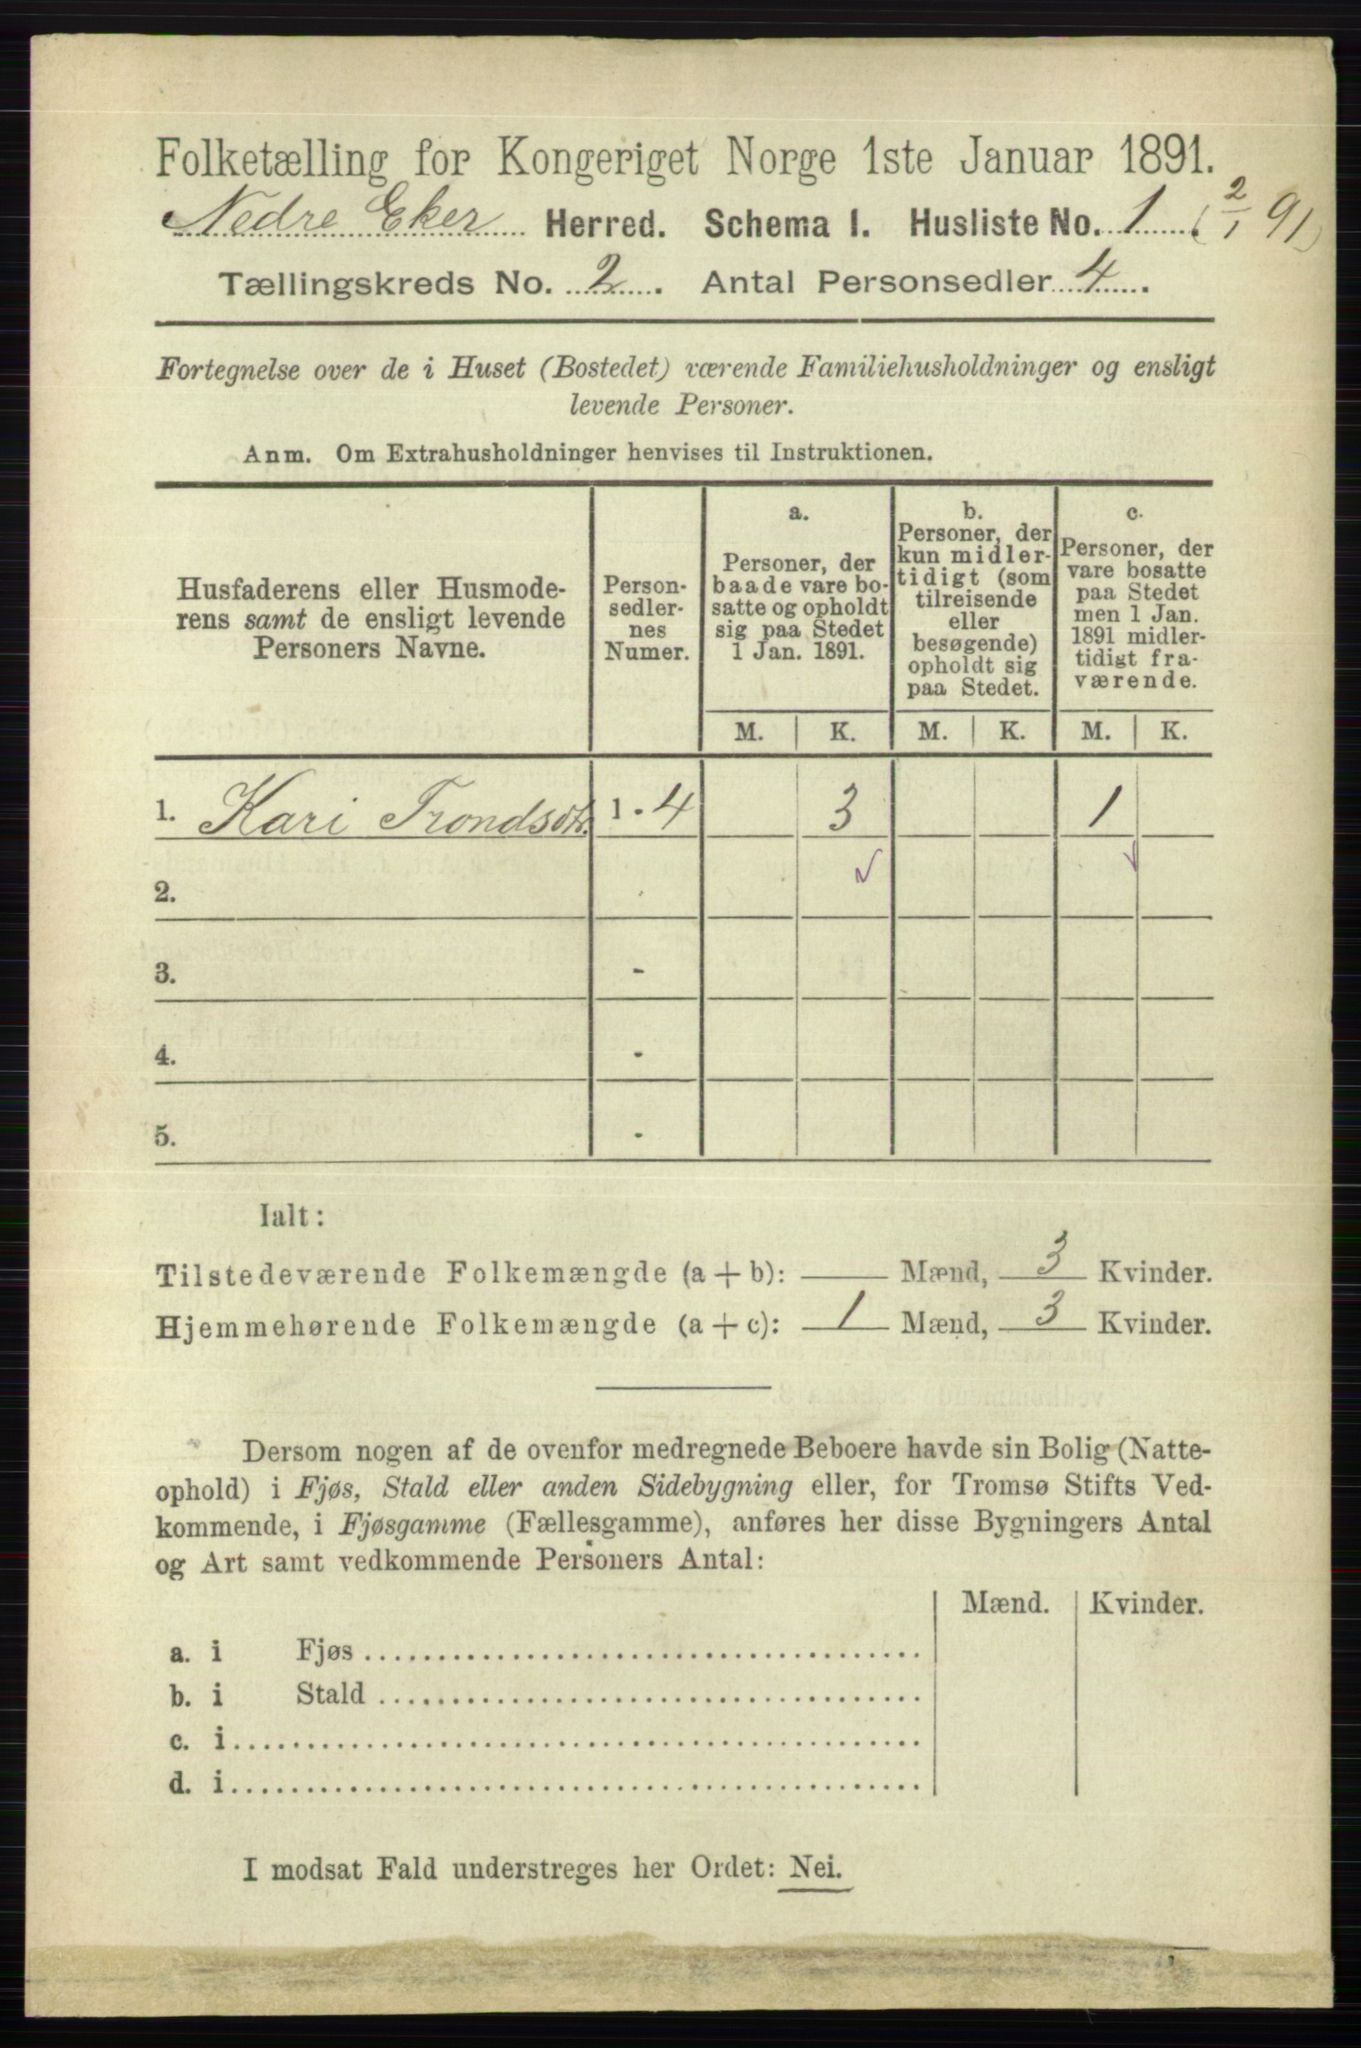 Folketælling for Kongeriget Norge 1ste Januar 1891.
Nedre Eker Herred. Schema I. Husliste No. 1 (2/1 91)
Tællingskreds No. 2. Antal Personsedler 4.
Fortegnelse over de i Huset (Bostedet) værende Familiehusholdninger og ensligt
levende Personer.
Anm. Om Extrahusholdninger henvises til Instruktionen.
Husfaderens eller Husmode-
rens samt de ensligt levende
Personers Navne.
Person-
sedler-
nes
Numer.
a.
Personer, der
baade vare bo-
satte og opholdt
sig paa Stedet
1 Jan. 1891.
b.
Personer, der
kun midler-
tidigt (som
tilreisende
eller
besøgende)
opholdt sig
paa Stedet.
c.
Personer, der
vare bosatte
paa Stedet
men 1 Jan.
1891 midler-
tidigt fra-
værende.
M. K. M. K. M. K.
1. Kari Trondsdt. 1 - 4 3 1
2. -
3. -
4. -
5. -
Ialt:
Tilstedeværende Folkemængde (a + b): — Mænd, 3 Kvinder.
Hjemmehørende Folkemængde (a + c): 1 Mænd, 3 Kvinder.
Dersom nogen af de ovenfor medregnede Beboere havde sin Bolig (Natte-
ophold) i Fjøs, Stald eller anden Sidebygning eller, for Tromsø Stifts Ved-
kommende, i Fjøsgamme (Fællesgamme), anføres her disse Bygningers Antal
og Art samt vedkommende Personers Antal:
Mænd. Kvinder.
a. i Fjøs
b. i Stald
c. i
d. i
I modsat Fald understreges her Ordet: Nei.